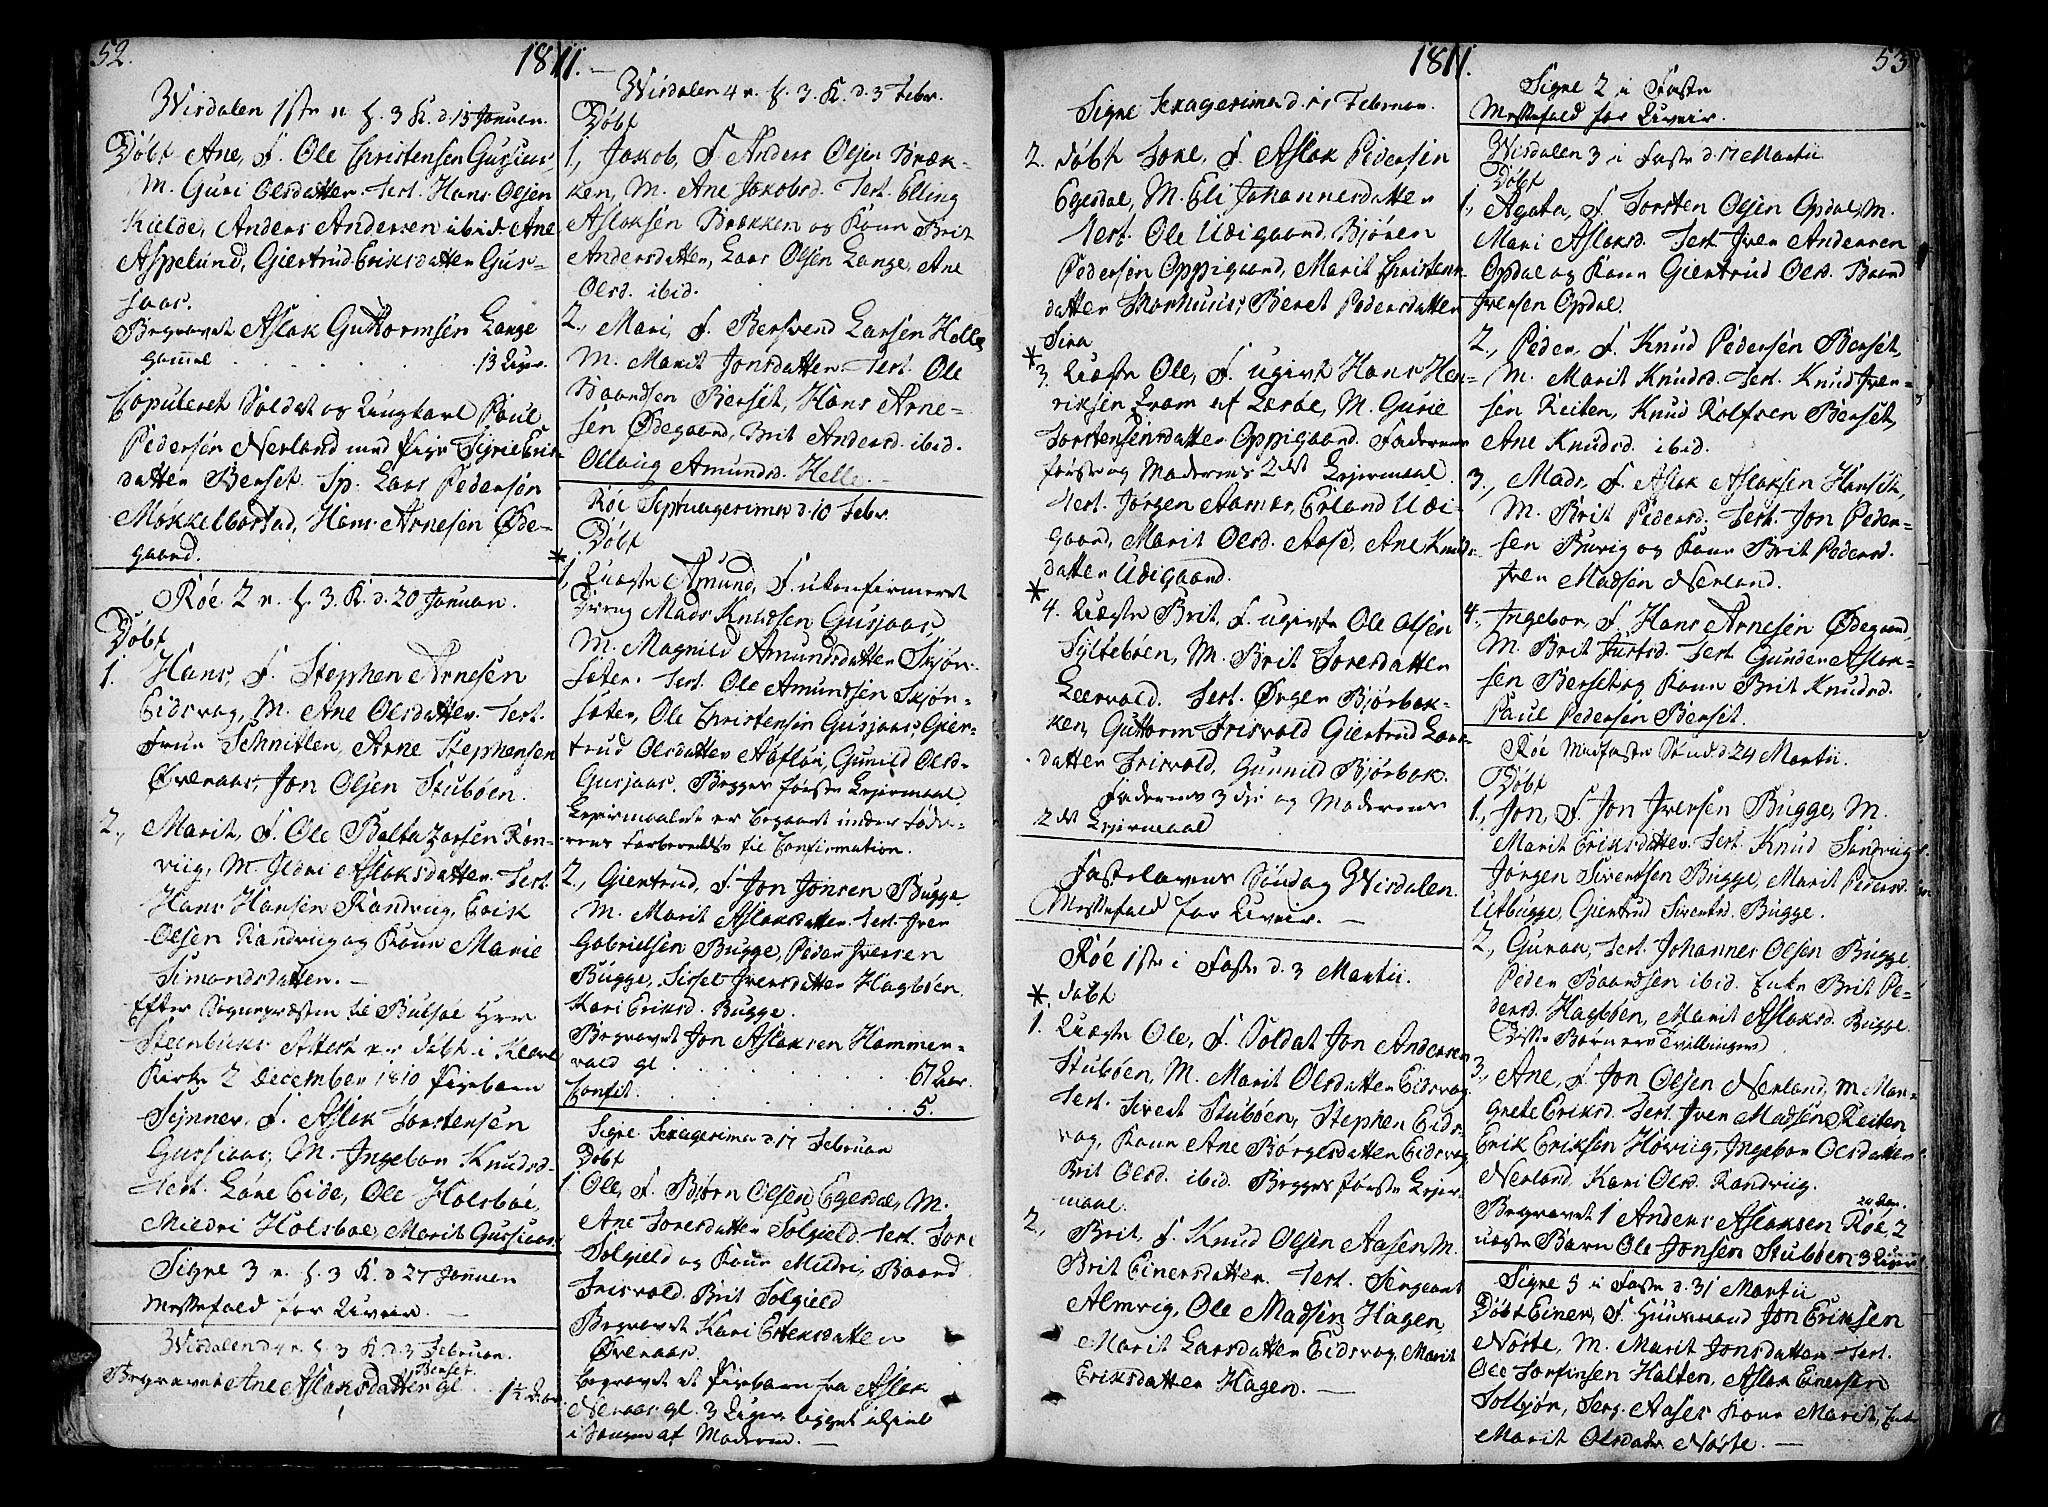 52.
1811.
Wisdalen 1ste n. H. 3 K. d. 13 Januar.
Døbt Ane, F. Ole Christensen Gussiaas,
M. Guri Olsdatter. Test. Hans Olsen
Kielde, Anders Andersen ibid. Ane
Aspelund, Giertrud Eriksdatter Gus-
siaas.
Begravet Aslak Guttormsen Lange
gammel . . . . . 13 Uger.
Copuleret Soldat og Ungkarl Paul
Pedersen Nerland med Pige Sigri Eriks-
datter Berset. Sp. Lars Pedersen
Mokkelbostad, Hans Arnesen Øde-
gaard.
Røe 2 n. H. 3. K. d. 20 Januar.
Døbt
1. Hans, F. Stephen Arnesen
Eidsvog, M. Ane Olsdatter. Test.
Frue Schnitler, Arne Stephensen
Øveraas, Jon Olsen Stubøen.
2., Marit, F. Ole Baltazorsen Ran-
viig, M. Ildri Aslaksdatter. Test.
Hans Hansen Randviig, Erik
Olsen Randviig og Kone Marie
Simonsdatter. —
Efter Sognepræsten til Bulsøe Herr
Steenbuks Attest er døbt i Kleve
Kirke 2 December 1810 Pigebarn
Synnev, F. Aslak Torstensen
Gussiaas, M. Ingebor Knudsd.
Test. Lone Eide, Ole Holsbøe,
Mildri Holsboe, Marit Gussiaas.
Signe 3 n. H. 3 K. d. 27 Januar
Messefald for Uveir. —
Wisdalen d 4 n. H. 3 K. d. 3 Februar.
Begravet Ane Aslaksdatter Berset gl. 1½ Aar.
Wisdalen 4 n. H. 3. K. d. 3 Febr.
Døbt
1., Jakob, F. Anders Olsen Bræk-
ken, M. Ane Jakobsd. Test. Elling
Aslaksen Brækken og Kone Brit
Andersdatter, Lars Olsen Lange, Ane
Olsd. ibid.
2., Mari, F. Bersvend Larsen Helle
M. Marit Jonsdatter. Test. Ole
Baardsen Berset, Hans Arne-
sen Ødegaard, Brit Andersd. ibid.
Ollaug Amundsd. Helle. —
Røe Septuagesima d. 10 Febr.
Døbt
*
1, Uægte Amund, F. ukonfirmeret
Dreng Mads Knudsen Gusjaas,
M. Magnild Amundsdatter Skjør-
sæter. Test. Ole Amundsen Skjør-
sæter, Ole Christensen Gusjaas, Gier-
trud Olsdatter Aafløi, Gunild Olsd.
Gusjaas. Begges første Lejermaal.
Lejermaalet er begaaet under Fade-
rens Forberedelse til Confirmation.
2., Giertrud, F. Jon Jonsen Bugge
M. Marit Aslaksdatter. Test. Iver
Gabrielsen Bugge, Peder Iversen
Bugge, Sissel Iversdatter Hagbøen.
Kari Eriksd. Bugge.
Begravet Jon Aslaksen Hammer-
vold gl. . . . . . . 67 Aar.
Confit. . . . . . . . 5.
Signe Sexagesima d. 17 Februar
Døbt
1 Ole, F. Bjørn Olsen Egesdal, M.
Ane Toresdatter Solgield. Test. Tore
Solgield og Kone Mildri, Baard
Frisvold. Brit Solgield
Begravet Kari Eriksdatter
Øveraas.
begravet et Pigebarn fra Aslak
Neraas gl. 3 Uger, ligget ihjel
i Sengen af Moderen. —
1811.
53.
Signe Sexagesima d. 17 Februar.
2. døbt Tore, F. Aslak Pedersen
Egesdal, M. Eli Johannesdatter
Test. Ole Udigaard, Bjøren
Pedersen Oppigaard, Marit Christens-
datter Storhuus, Beret Pedersdatter
Sira
*
3. Uægte Ole, F. ugivt Hans Hen-
riksen Lram af Læsøe, M. Gurie
Torstensensdatter Oppigaard. Faderens
første og Moderens 2det Lejermaal.
Test. Jørgen Aames, Erland Udi-
gaard, Marit Olsd. Aase, Ane Knuds-
datter Udigaard.
*
4. Uægte Brit, F. ugivte Ole Olsen
Syltebøen, M. Brit Toresdatter
Leervold. Test. Ørgen Bjørbak-
ken, Guttorm Frisvold, Giertrud Lars-
datter Frisvold, Gunnild Bjørbak.
Faderens 3die og Moderens
2det Lejermaal
Fastelavens Søndag Wisdalen.
Messefald for Uveir. —
Røe 1ste i Faste d. 3 Martii.
* døbt
1. Uægte Ole, F. Soldat Jon Andersen
Stubøen, M. Marit Olsdatter Eidsvog.
Test. Sivert Stubøen, Stephen Eids-
vog, Kone Ane Børgesdatter Eidsvog
Brit Olsd. ibid. Begges første Lejer-
maal.
2., Brit, F. Knud Olsen Aasen M.
Brit Einersdatter. Test. Sergeant
Almvig, Ole Madsen Hagen,
Marit Larsdatter Eidsvog, Marit
Eriksdatter Hagen. —
Signe 2 i Faste
Messefald for Uveir.
Wisdalen 3 i Faste d. 17 Martii
Døbt
1., Agata, F. Torsten Olsen Opdal, M.
Mari Aslaksd. Test. Iver Andersen
Opdal og Kone Giertrud Olsd. Baard
Iversen Opdal.
2., Peder, F. Knud Pedersen Berset,
M. Marit Knudsd. Test. Knud Iver-
sen Reiten, Knud Rolfsen Berset,
Ane Knudsd. ibid.
3., Mads, F. Aslak Aslaksen Hansik,
M. Brit Pedersd. Test. Jon Peder-
sen Burig og Kone Brit Pedersd.
Iver Madsen Nerland.
4., Ingebor, F. Hans Arnesen Ødegaard,
M. Brit Justsd. Test. Gunder Aslak-
sen Berset og Kone Brit Knudsd.
Paul Pedersen Berset.
Røe Midfaste Sønd. d. 24 Martii.
Døbt
1., Jon, F. Jon Iversen Bugge, M.
Marit Eriksdatter. Test. Knud Sandviig
Jørgen Sivertsen Bugge, Marit Pedersd.
Utbugge, Giertrud Sivertsd. Bugge.
2., Guraa, Test. Johannes Olsen Bugge.
Peder Baardsen ibid. Enke Brit Pe-
dersd. Hagbøen, Marit Aslaksd. Bugge.
(Disse Børn ere Tvillinger)
3., Ane, F. Jon Olsen Nerland, M. Mar-
grete Eriksd. Test. Iver Madsen Reiten
Erik Eriksen Høviig, Ingebor Olsdatter
Nerland, Kari Olsd. Randviig.
Begravet 1 Anders Aslaksen Røe, 2
uægte Barn Ole Jonsen Stubøen 3 Uger
Signe 5 i Faste d. 31 Martii
Døbt Einer, F. Huusmand Jon Eriksen
Nøste, M. Marit Jonsdatter. Test.
Ole Torfinsen Halten, Aslak Einersen
Solbjør, Serg. Aases Kone Marit,
Marit Olsdatr Nøste. —